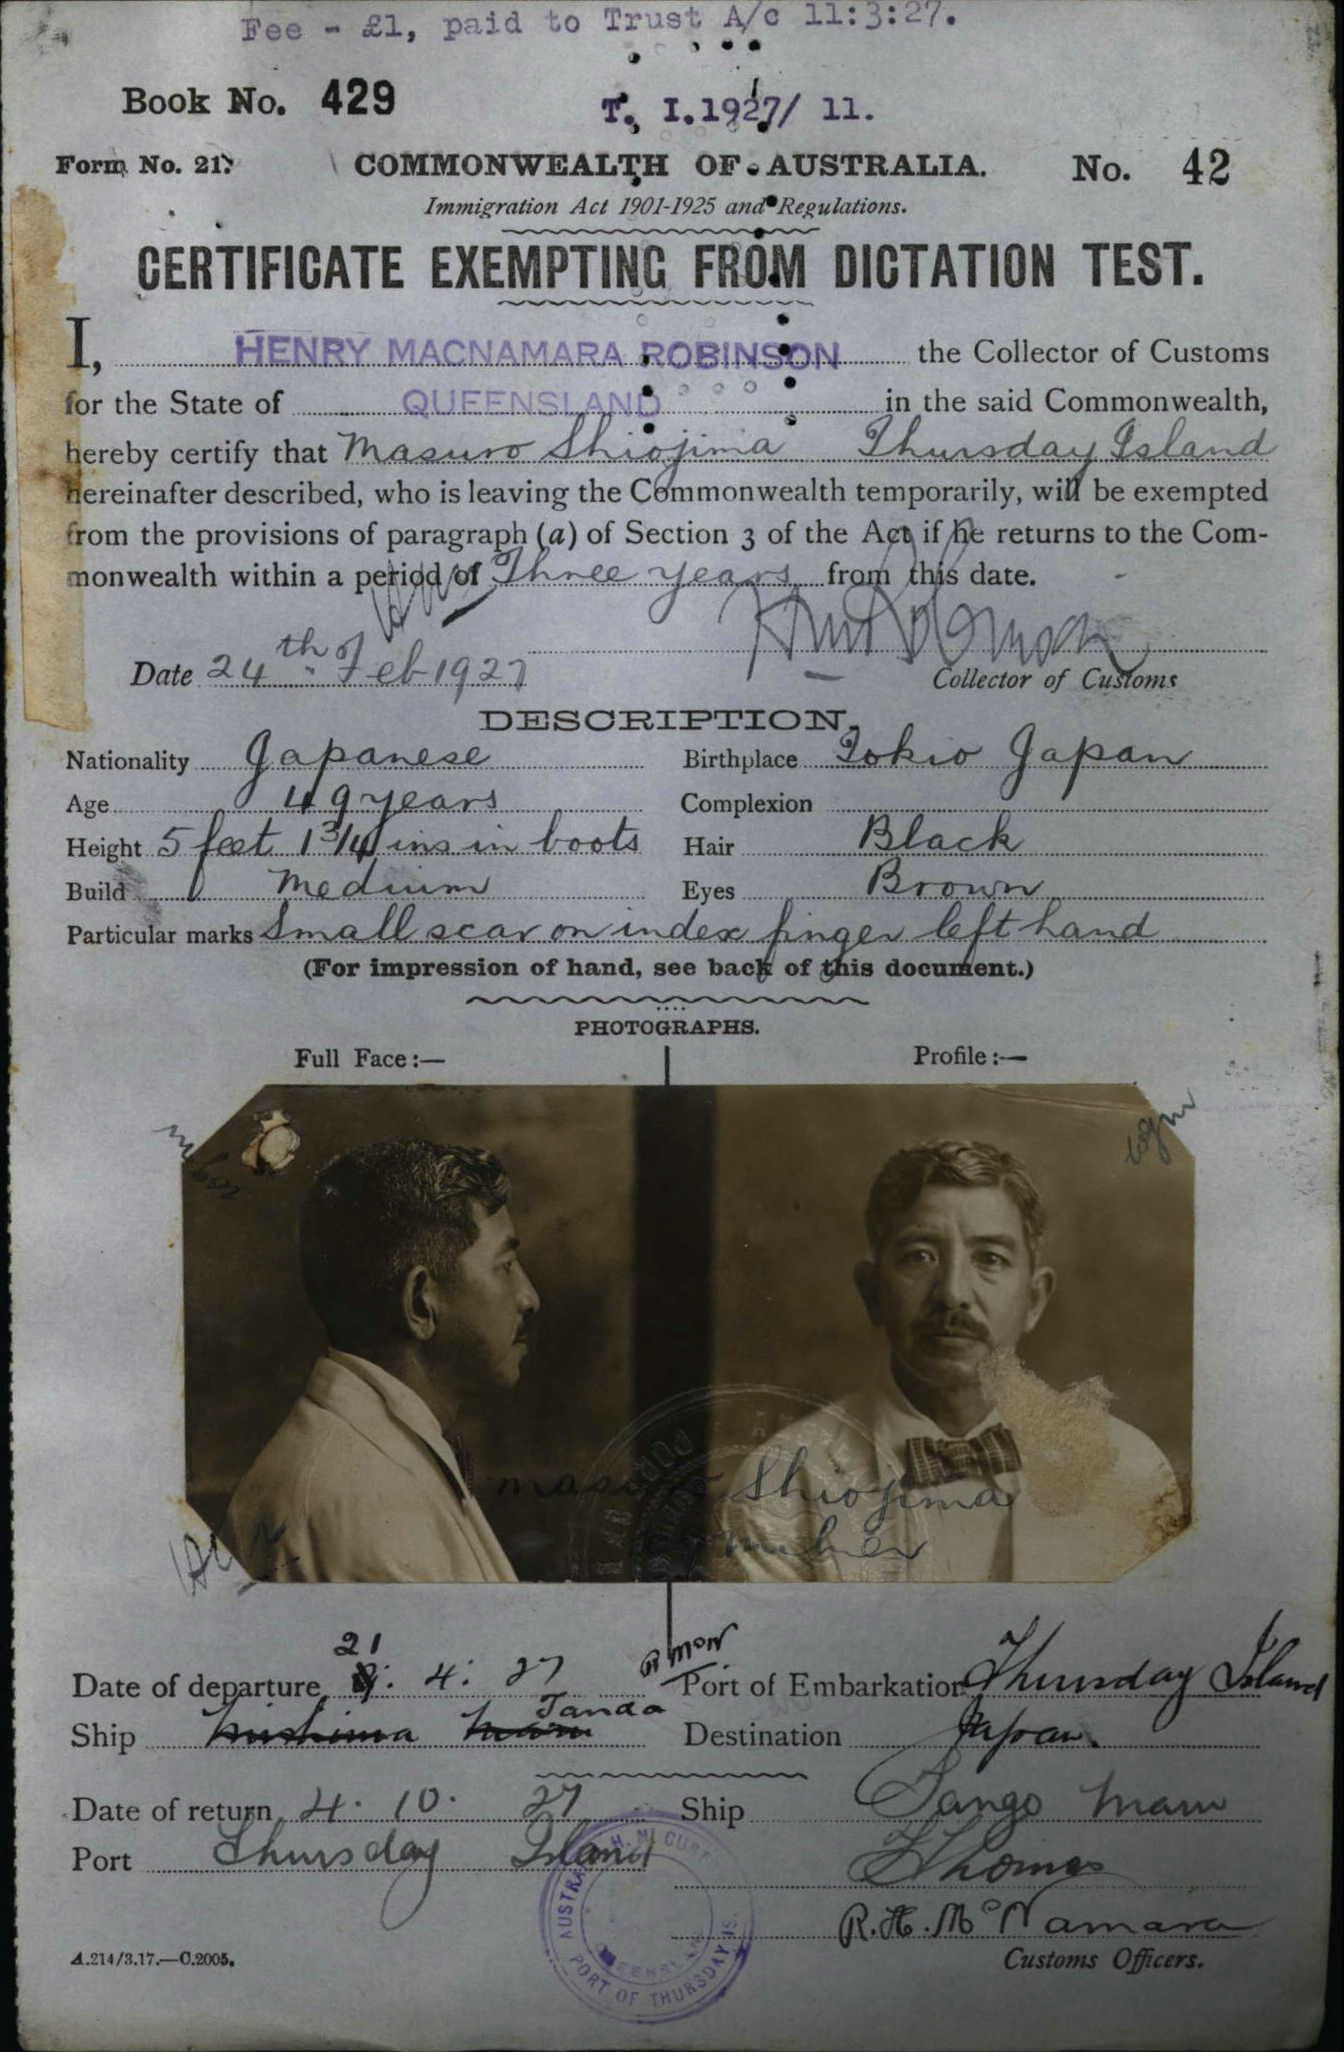 Fee - £1, paid to Trust A/c 11:3:27.
Book No. 429 T. I.1927/ 11.
Form No. 21. COMMONWEALTH OF AUSTRALIA. No. 42
Immigration Act 1901-1925 and Regulations.
CERTIFICATE EXEMPTING FROM DICTATION TEST.
I, HENRY MACNAMARA ROBINSON the Collector of Customs
for the State of QUEENSLAND in the said Commonwealth,
hereby certify that Masuro Shiojima Thursday Island
hereinafter described, who is leaving the Commonwealth temporarily, will be exempted
from the provisions of paragraph (a) of Section 3 of the Act if he returns to the Com-
monwealth within a period of Three years from this date.
Date 24th of Feb 1927
Collector of Customs
DESCRIPTION.
Nationality Japanese Birthplace Tokio Japan
Age 49 years Complexion
Height 5 feet 1 3/4 ins in boots Hair Black
Build Medium Eyes Brown
Particular marks Small scar on index finger left hand
(For impression of hand, see back of this document.)
PHOTOGRAPHS.
Full Face:— Profile:—
Masuro Shiojima
21
Date of departure 4. 27 Port of Embarkation Thursday Island
Ship Mishima Maru Tanda Destination Japan.
Date of return 4. 10. 27 Ship Tango Maru
Port Thursday Island
Thomas
R. H. McNamara
PORT OF THURSDAY IS.
A.214/3.17.—C.2005. Customs Officers.